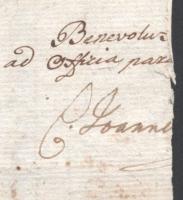 Benevolus
ad Officia para
C. Joanne